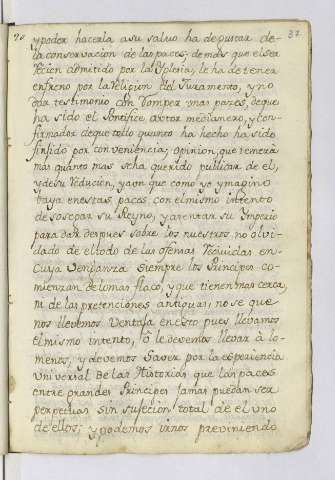 37
y poder hacerla a su salvo ha de gustar de
la conservacion de las paces; demas que el ser
Recien admitido por la Yglesia, le ha de tener
enfreno por la Religion del Juramento, y no
dar testimonio con Romper unas pazes, de que
ha sido el Pontifice autor medianero, y con-
firmador de que todo quanto ha hecho ha sido
finjido por conveniencia; Opinion, que temera
mas quanto mas se ha querido publicar de el,
y de su Reducion, y aun que como yo ymagino
baya en estas paces con el mismo intento
de sosegar su Reyno, y asentar su Ymperio
para dar despues sobre los nuestros no olvi-
dado de el todo de las ofensas Recividas en
cuya Venganza siempre los Principes co-
mienzan de lo mas flaco, y que tienen mas cerca,
ni de las pretenciones antiguas; no se que
nos llevemos Ventaja en esto pues llevamos
el mismo intento, ò le devemos llevar à lo-
menos, y devemos Saver por la experiencia
universal de las Historias que las paces
entre grandes Principes jamas puedan ser
perpetuas sin sujecion total de el uno
de ellos; y podemos irnos previniendo